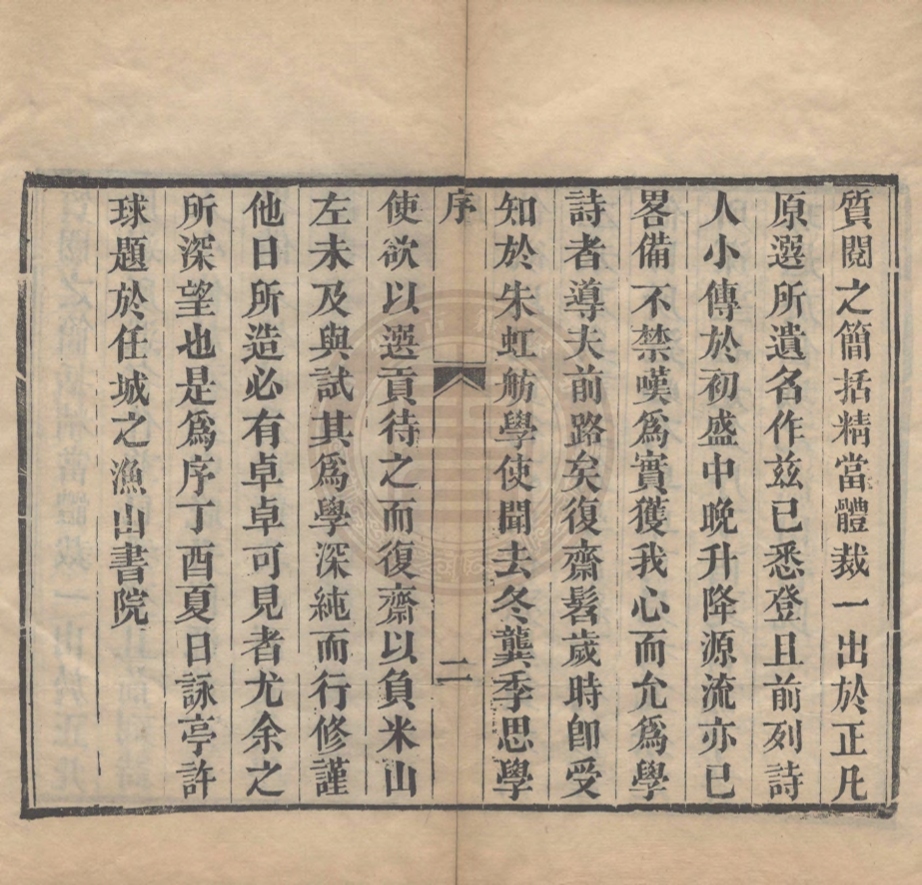 質閱之簡括精當體裁一出於正凡
原選所遺名作兹已悉登且前列詩
人小傳於初盛中晚升降源流亦已
畧備不禁嘆爲實獲我心而允爲學
詩者導夫前路矣復齋髫歲時卽受
知於朱虹舫學使聞去冬龔季思學
序
二
使欲以選貢待之而復齋以負米山
左未及與試其爲學深純而行修謹
他日所造必有卓卓可見者尤余之
所深望也是爲序丁酉夏日詠亭許
球題於任城之漁山書院